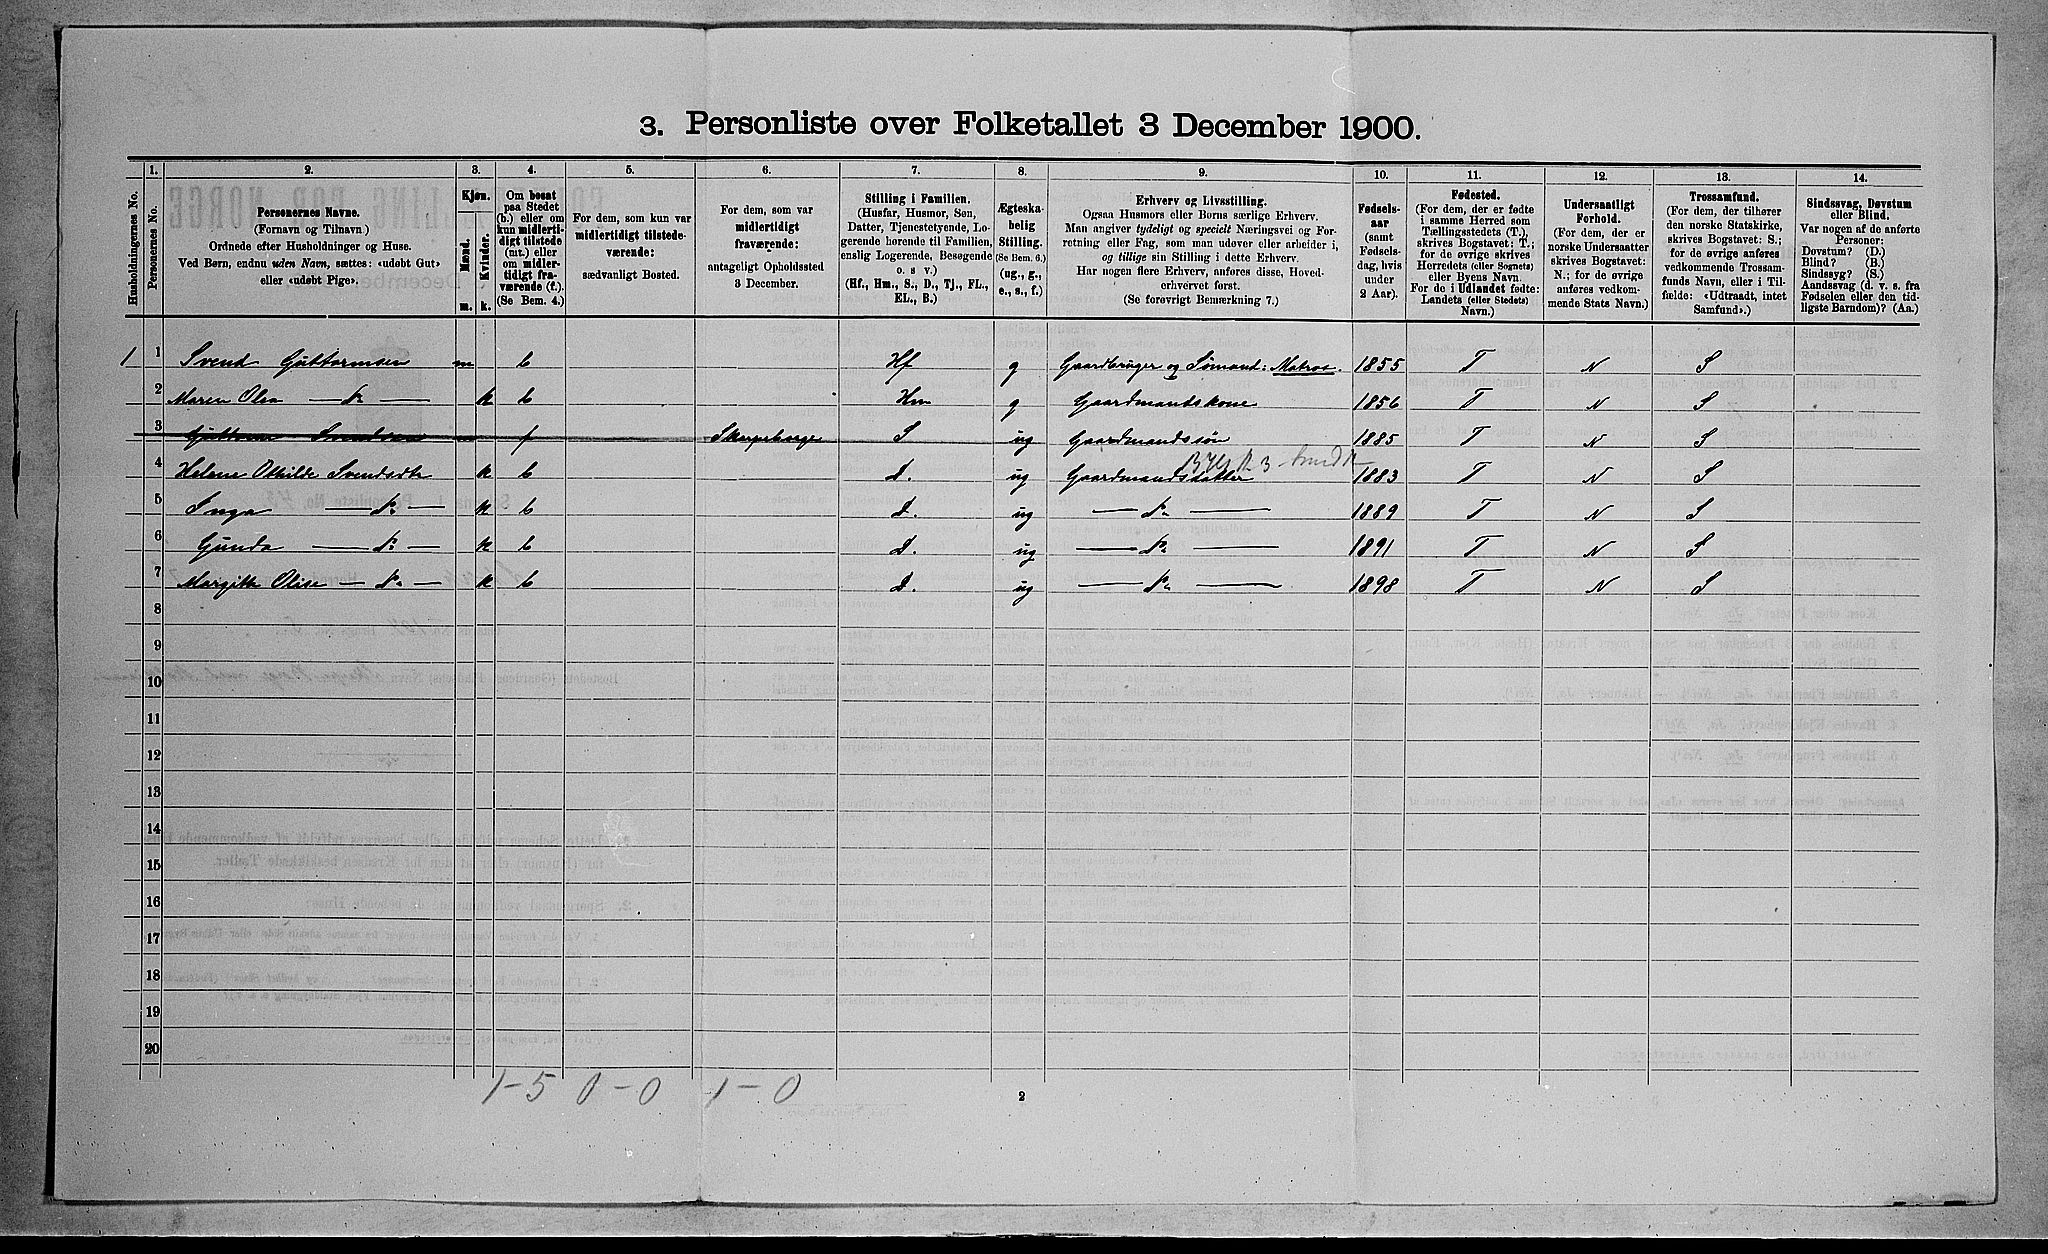 3. Personliste over Folketallet 3 December 1900.
1. 2. 3. 4. 5. 6. 7. 8. 9. 10. 11. 12. 13. 14.
Husholdningernes No.
Personernes No.
Personernes Navne.
(Fornavn og Tilnavn.)
Ordnede efter Husholdninger og Huse.
Ved Børn, endnu uden Navn, sættes: «udøbt Gut»
eller «udøbt Pige».
Kjøn.
Mænd.
Kvinder.
m. k.
Om bosat
paa Stedet
(b.) eller om
kun midlerti-
digt tilstede
(mt.) eller
om midler-
tidigt fra-
værende (f.).
(Se Bem. 4.)
For dem, som kun var
midlertidigt tilstede-
værende:
sædvanligt Bosted.
For dem, som var
midlertidigt
fraværende:
antageligt Opholdssted
3 December.
Stilling i Familien.
(Husfar, Husmor, Søn,
Datter, Tjenestetyende, Lo-
gerende hørende til Familien,
enslig Logerende, Besøgende
o. s v.)
(Hf., Hm., S., D., Tj., FL.,
EL., B.)
Ægteska-
belig
Stilling.
(Se Bem. 6.)
(ug., g.,
e., s., f.)
Erhverv og Livsstilling.
Ogsaa Husmors eller Børns særlige Erhverv.
Man angiver tydeligt og specielt Næringsvei og For-
retning eller Fag, som man udøver eller arbeider i,
og tillige sin Stilling i dette Erhverv.
Har nogen flere Erhverv, anføres disse, Hoved-
erhvervet først.
(Se forøvrigt Bemærkning 7.)
Fødsels-
aar
(samt
Fødsels-
dag, hvis
under
2 Aar).
Fødested.
(For dem, der er fødte
i samme Herred som
Tællingsstedets (T.),
skrives Bogstavet: T.;
for de øvrige skrives
Herredets (eller Sognets)
eller Byens Navn.
For de i Udlandet fødte:
Landets (eller Stedets)
Navn.)
Undersaatligt
Forhold.
(For dem, der er
norske Undersaatter
skrives Bogstavet:
N.; for de øvrige
anføres vedkom-
mende Stats Navn.)
Trossamfund.
(For dem, der tilhører
den norske Statskirke,
skrives Bogstavet: S.;
for de øvrige anføres
vedkommende Trossam-
funds Navn, eller i Til-
fælde: «Udtraadt, intet
Samfund».)
Sindssvag, Døvstum
eller Blind.
Var nogen af de anførte
Personer:
Døvstum? (D.)
Blind? (B.)
Sindssyg? (S.)
Aandssvag (d. v. s. fra
Fødselen eller den tid-
ligste Barndom)? (Aa.)
1 1 Svend Guttormsen m b Hf g Gaardbruger og Sømand: Matros. 1855 T N S
2 Maren Olea — Do — k b Hm g Gaardmandskone 1856 T N S
3 Guttorm Svendsen m f Skorpeborge S ug Gaardmandssøn 1885 T N S
4 Helene Othilde Svendsdtr k b D. ug Gaardmandsdatter 1883 T N S
5 Inga — Do — k b D. ug — Do — 1889 T N S
6 Gunda — Do — k b D. ug — Do — 1891 T N S
7 Margith Olise — Do — k b D. ug — Do — 1898 T N S
8
9
10
11
12
13
14
15
16
17
18
19
20
1-5 0-0 1-0
2